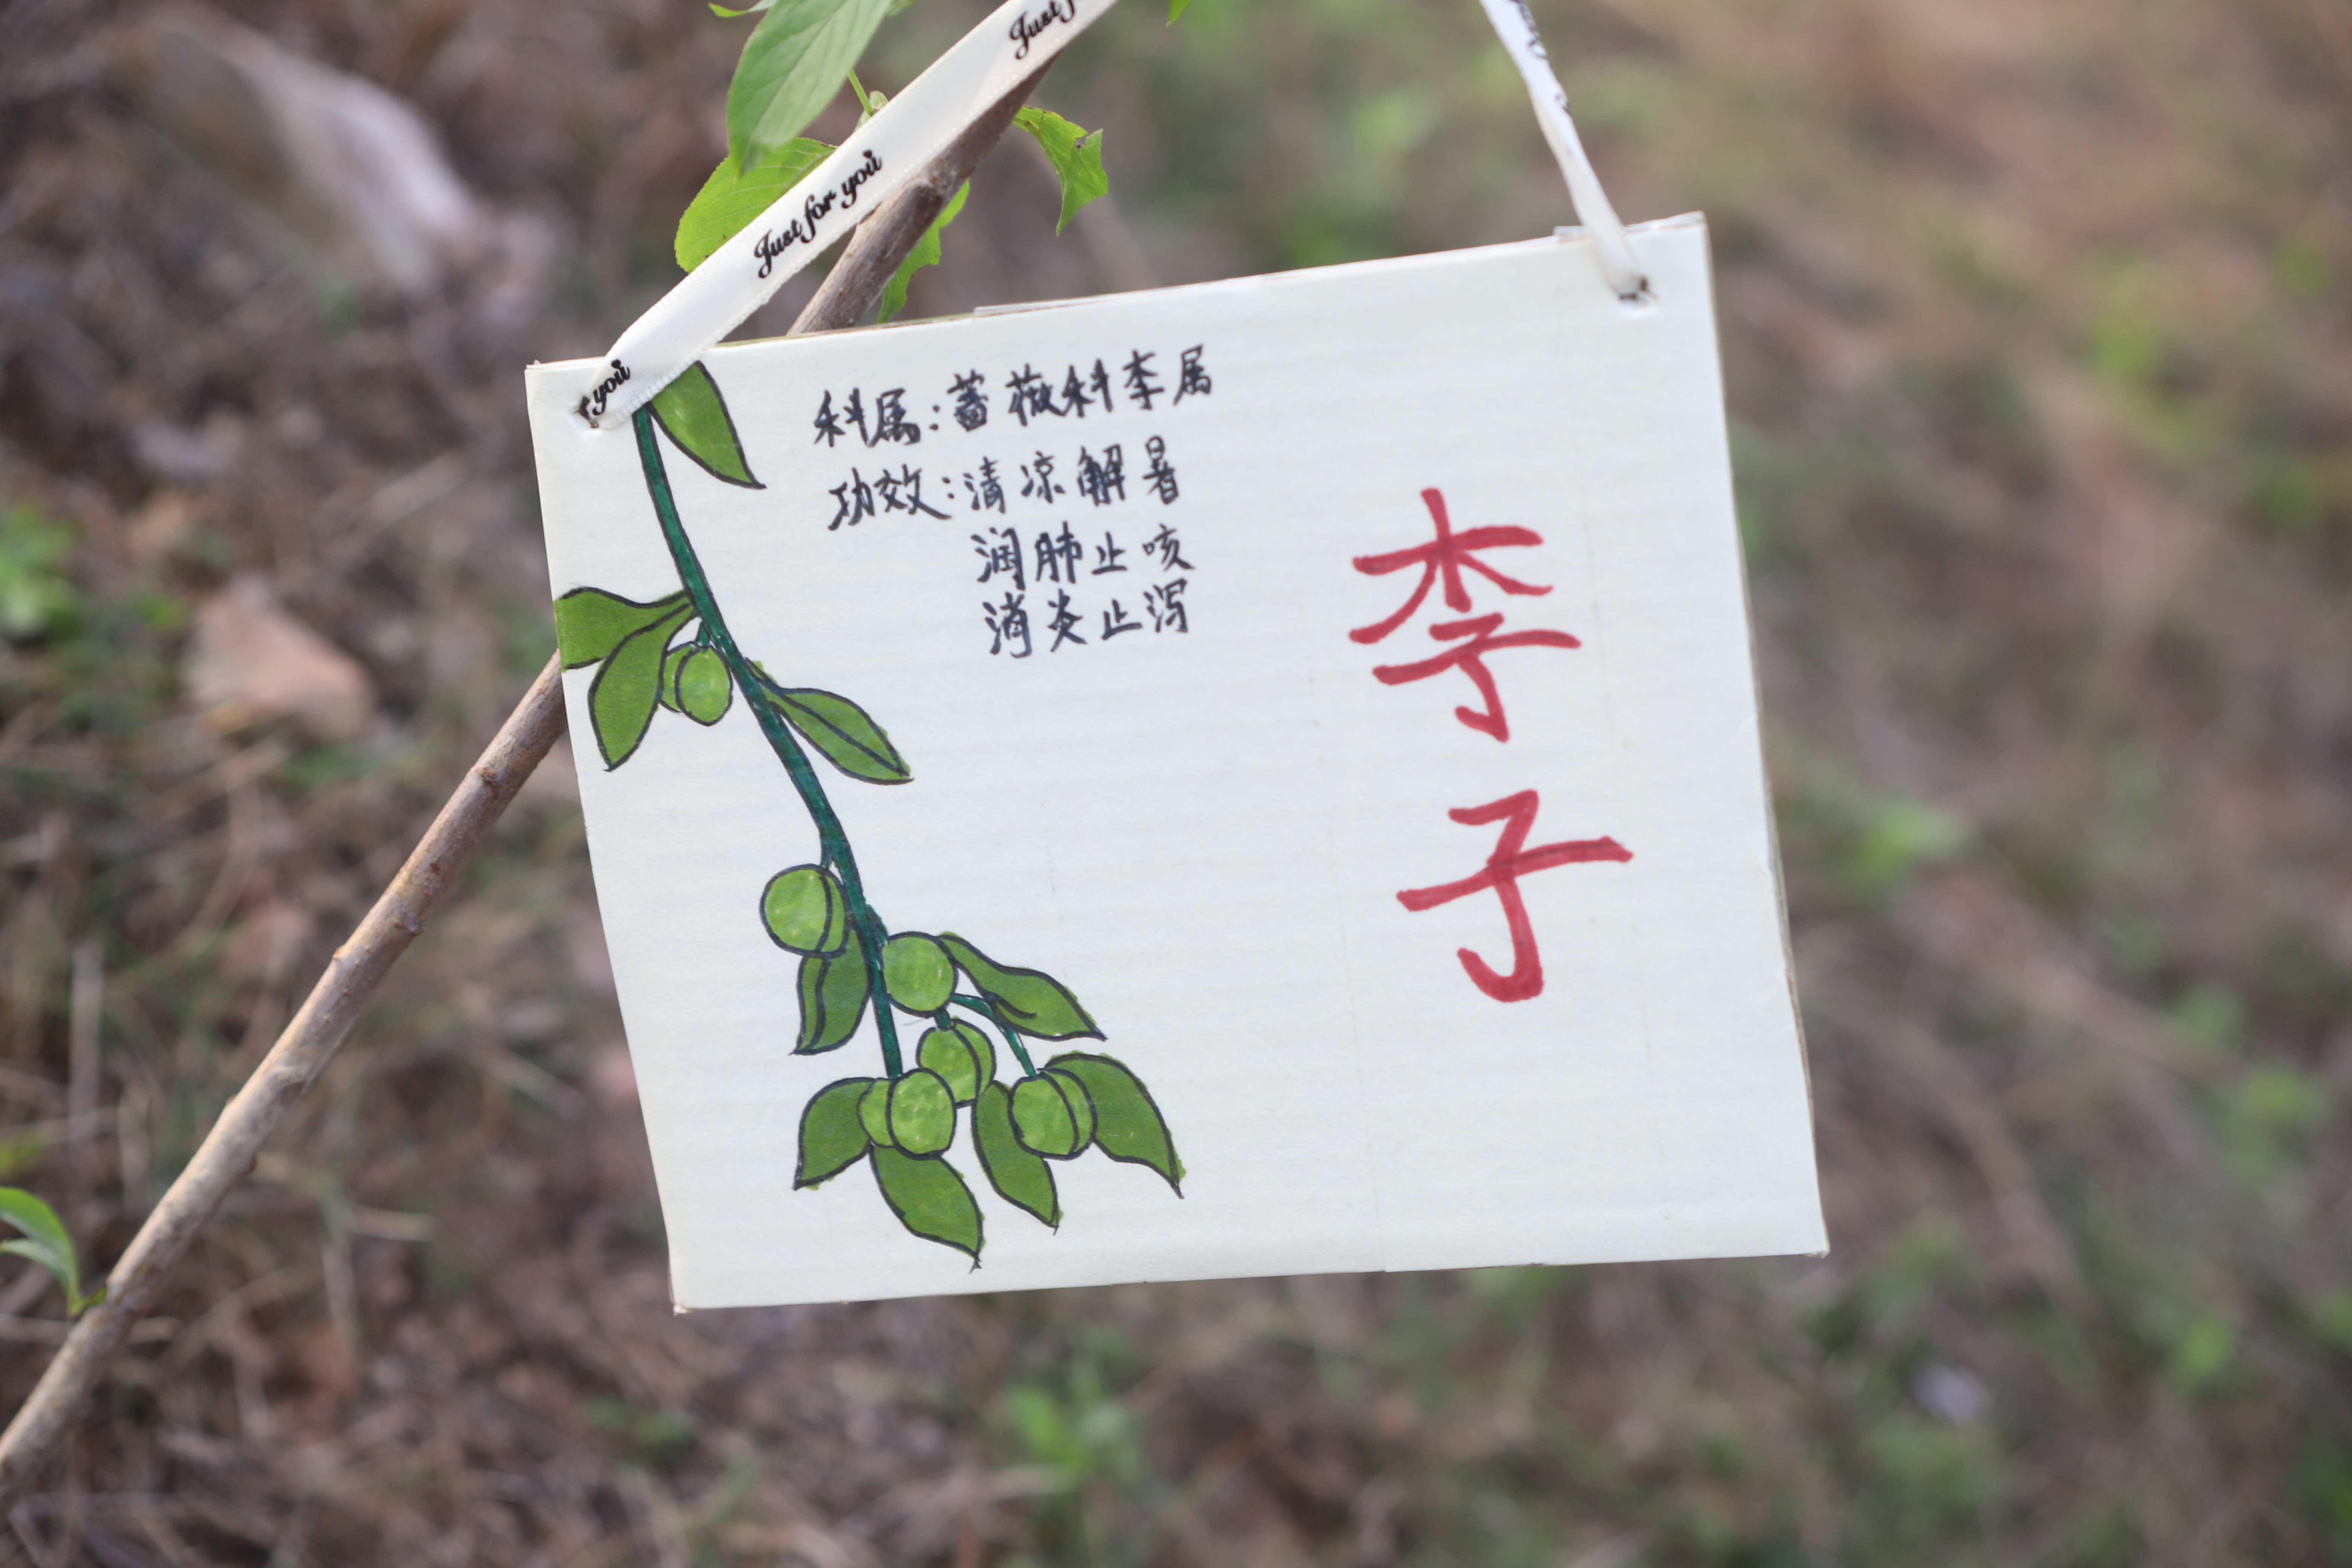 Just for you
you
科属：蔷薇科李属
功效：清凉解暑
润肺止咳
消炎止泻
李子